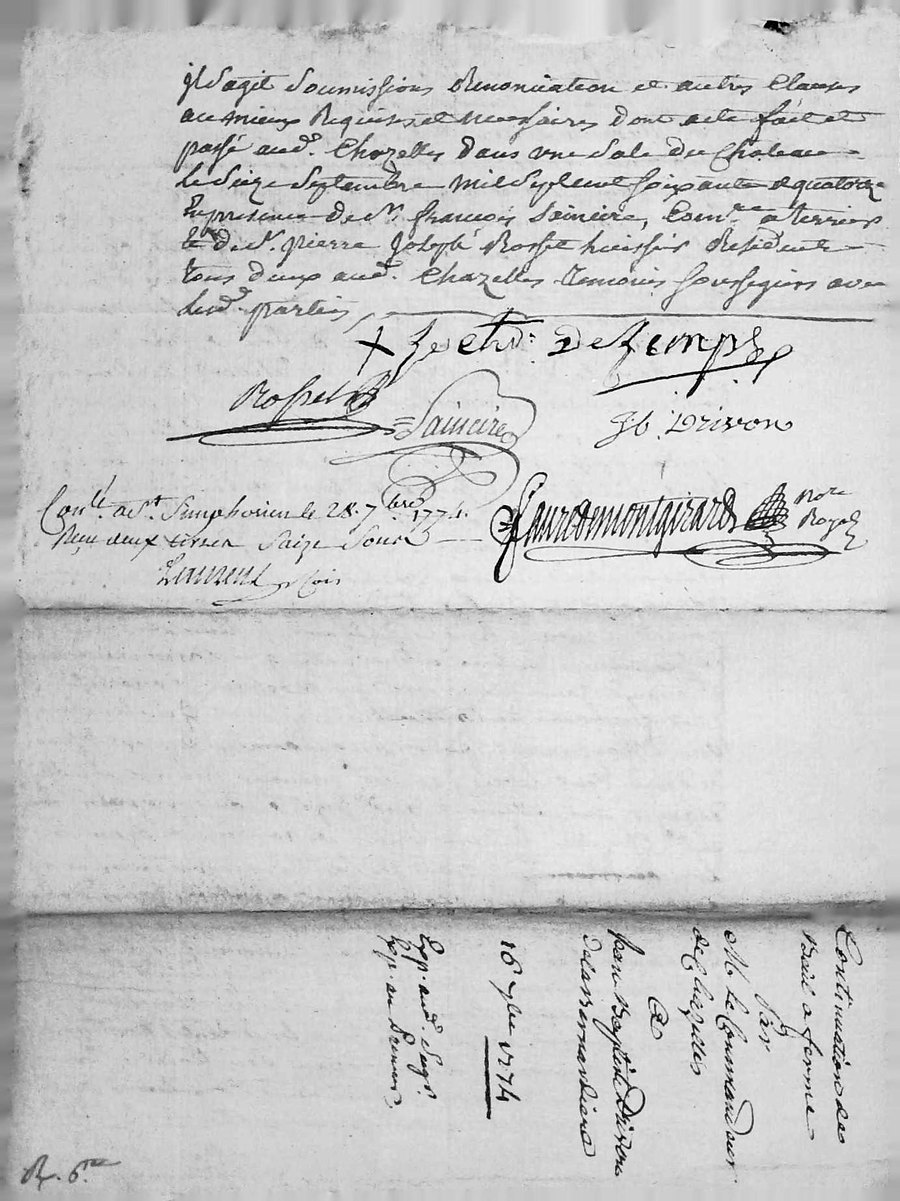 il s'agit soumissions Renonciation et autres Clauses
au mieux Requises et necessaires dont acte fait et
passé aud. Chazelles dans une Sale du Chateau
le Seize Septembre mil Sept Cent soixante et quatorze
En presence de Sr. françois Saincire, Comre. a terriers
et de Sr. pierre Joseph Rosset huissier Residents
tous deux aud. Chazelles Temoins soussignés avec
lesd. parties
+ le chr. De Lemps
Rosset
Saincire
Jb Drivon
Conlé. a St. Simphorien le 28. 7bre 1774.
Reçu deux livres Saize Sous
Laurent
faure de montgirard
Nore
Royal
Continuation de
Bail a ferme
Par
Mr. le Commandeur
de Chazelles
A
Jean Baptiste Drivon
de la Bernardiere
16 7bre 1774
Exp. aud. Seigr.
Exp. au Preneur
R. 6.